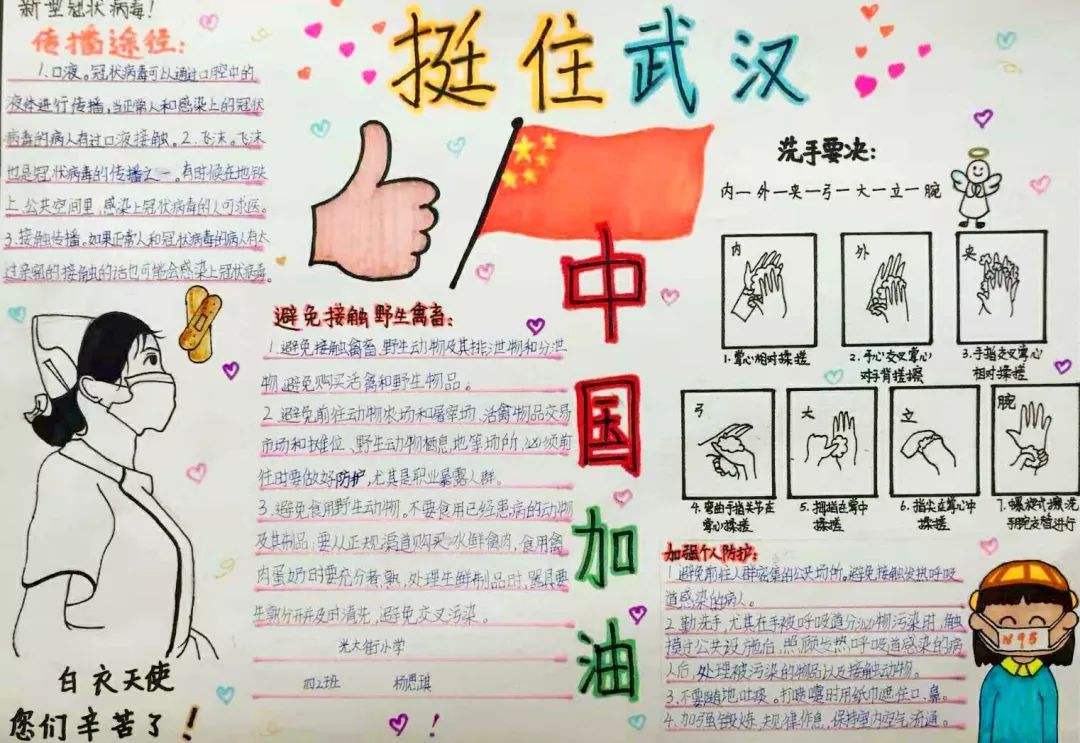 新型冠状病毒!
传播途径:
1.口液。冠状病毒可以通过口腔中的
液体进行传播,当正常人和感染上的冠状
病毒的病人有过口液接触。2.飞沫。飞沫
也是冠状病毒的传播之一。有时候在地铁
上,公共空间里,感染上冠状病毒的人可求医。
3.接触传播。如果正常人和冠状病毒的病人有太
过亲密的接触的话也可能会感染上冠状病毒。
挺住武汉
中国加油
避免接触野生禽畜:
1.避免接触禽畜、野生动物及其排泄物和分泄
物,避免购买活禽和野生物品。
2.避免前往动物农场和屠宰场、活禽物品交易
市场和摊位、野生动物栖息地等场所,必须前
往时要做好防护,尤其是职业暴露人群。
3.避免食用野生动物。不要食用已经患病的动物
及其制品;要从正规渠道购买冰鲜禽肉,食用禽
肉蛋奶时要充分煮熟,处理生鲜制品时,器具要
生熟分开并及时清洗,避免交叉污染。
光大街小学
四2班 杨恩琪
!
白衣天使
您们辛苦了!
洗手要决:
内一外一夹一弓一大一立一腕
内
外
夹
1.掌心相对揉搓
2.手心交叉掌心
对手背搓擦
3.手指交叉掌心
相对揉搓
弓
大
立
腕
4.弯曲手指关节在
掌心揉搓
5.拇指在掌中
揉搓
6.指尖在掌心中
揉搓
7.螺旋式擦洗
手腕交替进行
加强个人防护:
1.避免前往人群密集的公共场所。避免接触发热呼吸
道感染的病人。
2.勤洗手,尤其在手被呼吸道分泌物污染时、触
摸过公共设施后,照顾发热呼吸道感染的病
人后,处理被污染的物品以及接触动物。
3.不要随地吐痰。打喷嚏时用纸巾遮住口、鼻。
4.加强锻炼、规律作息,保持室内空气流通。
N95